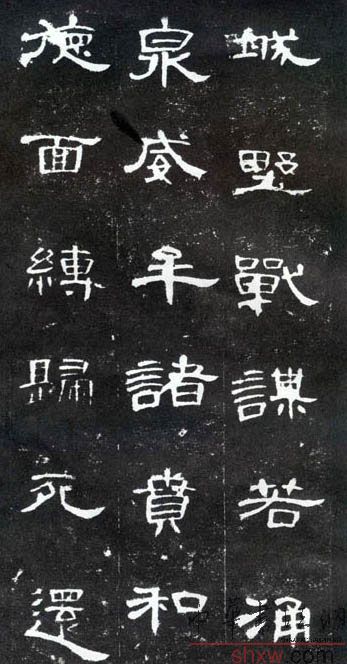 城野戰謀若涌
泉威牟諸賁和
德面縛歸死還
shxw.com